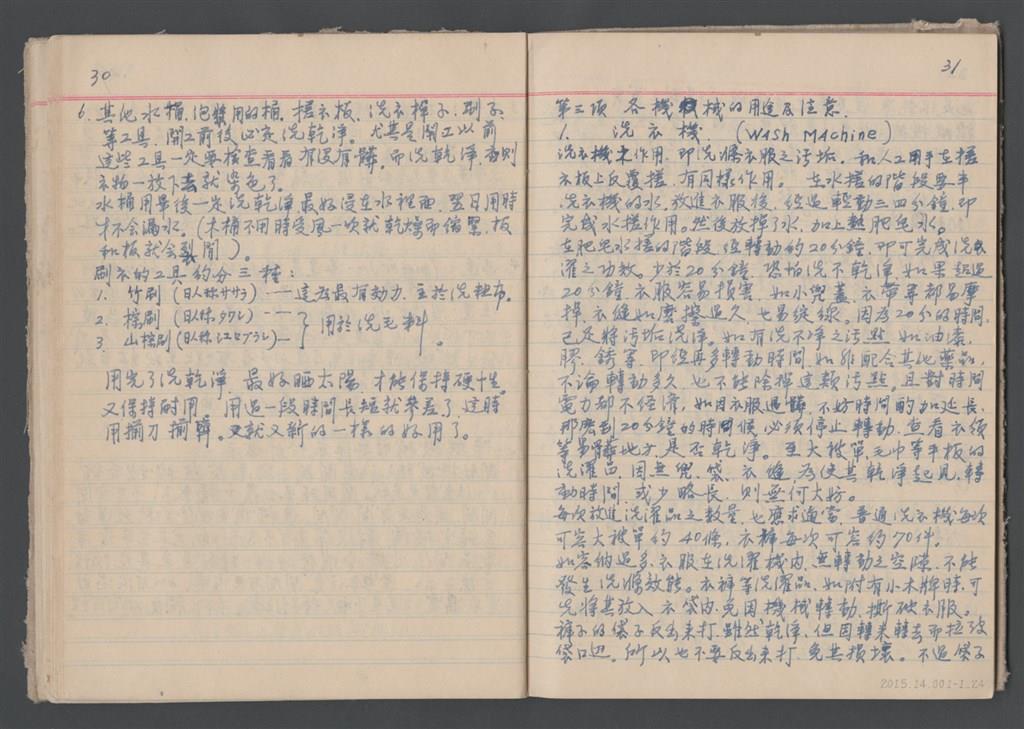 30
6. 其他水桶、泡漿用的桶、搓衣板、洗衣棒子、刷子、
等工具、開工前後必定洗乾淨。尤其是開工以前
這些工具一定要檢查看看有沒有髒、而洗乾淨、否則
衣物一放下去就染色了。
水桶用畢後一定洗乾淨最好浸在水裡面、翌日用時
才不會漏水。(木桶不用時受風一吹就乾燥而縮緊、板
和板就会裂開)。
刷衣的工具約分三種:
1. 竹刷(日人称ササラ)——這為最有効力、主於洗粗布。
2. 棕刷(日人称タワシ)—
3. 山棕刷(日人称 )— } 用於洗毛料。
用完了洗乾淨、最好晒太陽、才能保持硬性。
又保持耐用。用過一段時間長短就參差了、這時
用 刀 。又就又新的一樣的好用了。
31
第三項 各機機械的用途及注意.
1. 洗衣機 (WASH MACHINE)
洗衣機之作用、即洗滌衣服之污垢、和人工用手在搓
衣板上反覆搓、有同樣作用。在水搓的階段要半
洗衣機的水、放進衣服後、經過轉動三四分鐘、即
完成水搓作用。然後放掉了水、加上熱肥皂水。
在肥皂水搓的階段、經轉動約20分鐘、即可完成洗
濯之功效。少於20分鐘、恐怕洗不乾淨、如果超過
20分鐘、衣服容易損害、如小兜蓋、衣帶等都易摩
掉、衣縫如摩擦過久、也易綻線。因為20分的時間、
已足將污垢洗淨。如有洗不淨之污點、如油漆、
膠、銹等、即經再多轉動時間、如非配合其他藥品、
不論轉動多久、也不能除掉這類污點。且對時間
電力都不經濟、如因衣服過髒、不妨時間酌加延長、
那麼到20分鐘的時間候、必須停止轉動、查看衣領
等易髒地方、是否乾淨。至大被單、毛巾等平板的
洗濯品、因無兜、袋、衣縫、為使其乾淨起見、轉
動時間、或少略長、則無何大妨。
每次放進洗濯品之數量、也應求適當、普通洗衣機每次
可容大被單約40條、衣褲每次可容約70件。
如容納過多、衣服在洗濯機內、無轉動之空隙、不能
發生洗滌效能。衣褲等洗濯品、如附有小木牌時、可
先將其放入衣袋內、免因機械轉動、撕破衣服。
褲子的袋子反出來打、雖然乾淨、但因轉來轉去而拉破
袋口边。所以也不要反出來打、免其損壞。不過袋子
2015.14.001-1_24